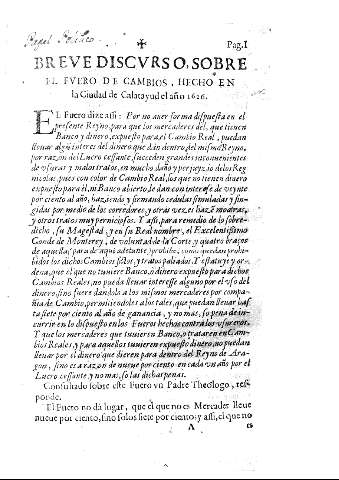 Pag. I
BREVE DISCVRSO, SOBRE
EL FVERO DE CAMBIOS, HECHO EN
la Ciudad de Calatayud el año 1626.
EL Fuero dize assi: Por no auer forma dispuesta en el
presente Reyno, para que los mercaderes del, que tienen
Banco y dinero, expuesto para el Cambio Real, puedan
lleuar algũ interes del dinero que dan dentro del mismo Reyno,
por razon del Lucro cessante, suceden grandes inconuenientes
de vsuras y malos tratos, en mucho daño y perjuyzio de los Reg
nicolas, pues con color de Cambio Real, los que no tienen dinero
expuesto para el, ni Banco abierto le dan con interese de veynte
por ciento al año, haziendo y firmando cedulas simuladas y fin-
gidas por medio de los corredores, y otras vezes hazẽ mohatras,
y otros tratos muy perniciosos. Y assi, para remedio de lo sobre-
dicho, su Magestad, y en su Real nombre, el Excelentissimo
Conde de Monterey, de voluntad de la Corte, y quatro braços
de aquella,
bidos los dichos Cambios fictos, y tratos paliados. Y estatuye y or-
dena, que el que no tuuiere Banco, ò dinero expuesto para dichos
Cambios Reales, no pueda lleuar interesse alguno por el vso del
dinero, sino fuere dandolo a los mismos mercaderes por compa-
ñia de Cambio, permitiendoles a los tales, que puedan lleuar has
ta siete por ciento al año de ganancia, y no mas, so pena de in-
currir en lo dispuesto en los Fueros hechos contra los vsureros.
Y que los mercaderes que tuuieren Banco, o trataren en Cam-
bios Reales, y para aquellos tuuieren expuesto dinero, no puedan
lleuar por el dinero que dieren para dentro del Reyno de Ara-
gon, sino es a razon de nueue por ciento en cada vn año por el
Lucro cessante y no mas, so las dichas penas.
Consultado sobre este Fuero vn Padre Theologo, res-
ponde.
El Fuero no dà lugar, que el que no es Mercader lleue
nueue por ciento, sino solos siete por ciento; y assi, el que no
A es